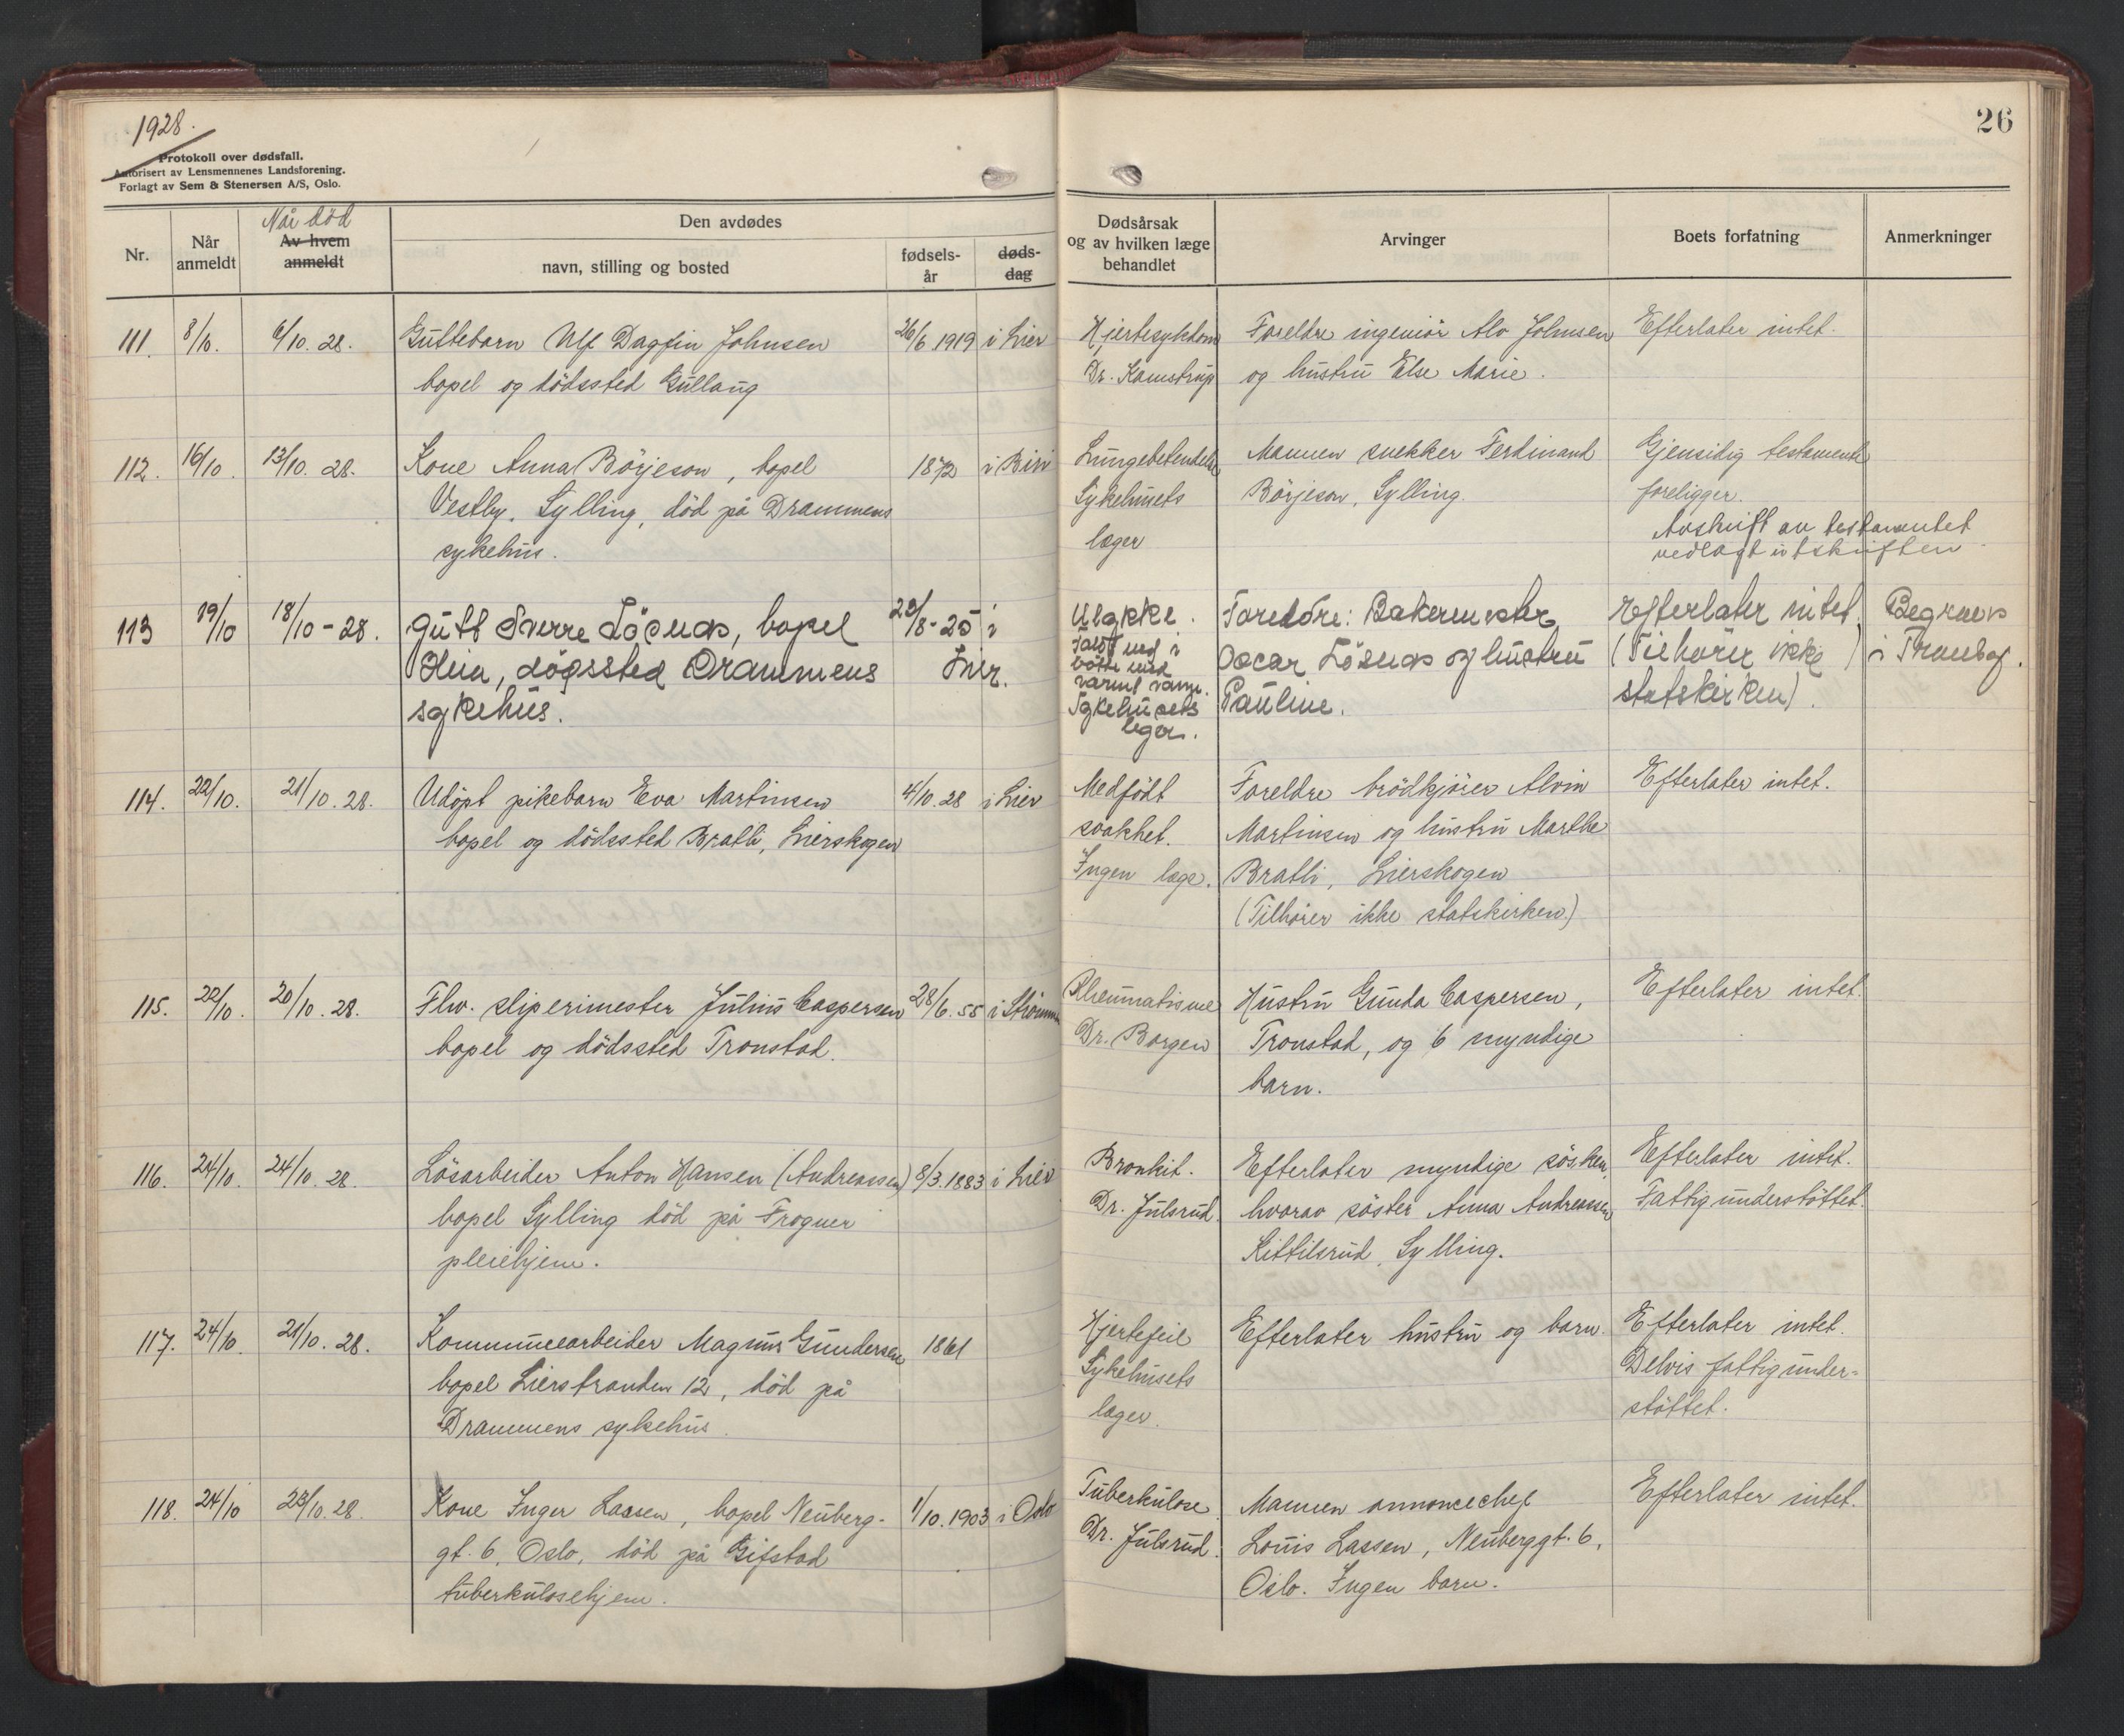 1928.
Protokoll over dødsfall.
Autorisert av Lensmennenes Landsforening.
Forlagt av Sem & Stenersen A/S, Oslo.
26
Nr.
Når
anmeldt
Når död
Av hvem
anmeldt
Den avdødes
navn, stilling og bosted
fødsels-
år
døds-
dag
Dødsårsak
og av hvilken læge
behandlet
Arvinger
Boets forfatning
Anmerkninger
111. 8/10. 6/10. 28. Guttebarn Ulf Dagfin Johnsen 26/6 1919 i Lier
bopel og dödssted Gullaug
Hjertesykdom
Dr. Kamstrup
Foreldre ingeniör Alv Johnsen
og hustru Else Marie.
Efterlater intet.
112. 16/10. 13/10. 28. Kone Anna Börjeson, bopel 1872 i
Vestby, Sylling, död på Drammens
sykehus.
Lungebetendelse
Sykehusets
læger
Mannen snekker Ferdinand
Börjeson, Sylling.
Gjensidig testamente
foreligger.
Avskrift av testamentet
vedlagt utskriften.
113 19/10 18/10 - 28. Gutt Sverre Lösnæs, bopel 23/8 - 25 i
Lier.
dödssted Drammens
sykehus.
Ulykke.
Faldt ned i
bötte med
varmt vann.
Sykehusets
leger.
Foreldre: Bakermester
Oscar Lösnæs og hustru
Pauline.
Efterlater intet.
(Tilhörer ikke
statskirken).
Begraves
i
114. 22/10. 21/10. 28. Udöpt pikebarn Eva Martinsen 4/10. 28 i Lier
bopel og dödssted Bratli, Lierskogen
Medfödt
svakhet.
Ingen læge.
Foreldre brödkjörer Alvin
Martinsen og hustru Marthe
Bratli, Lierskogen
(Tilhörer ikke statskirken)
Efterlater intet.
115. 22/10. 20/10. 28. Fhv. sliperimester Julius Caspersen 28/6. 55 i Strömm
bopel og dödssted Tronstad.
Rheumatisme
Dr. Borgen
Hustru Gunda Caspersen,
Tronstad, og 6 myndige
barn.
Efterlater intet.
116. 24/10. 24/10. 28. Lösarbeider Anton Hansen (Andreassen) 8/3. 1883 i Lier
bopel Sylling död på Frogner
pleiehjem.
Bronkit.
Dr. Julsrud.
Efterlater myndige sösken,
hvorav söster Anna Andreassen
Kittilsrud, Sylling.
Efterlater intet.
Fattigunderstöttet.
117. 24/10. 21/10. 28. Kommunearbeider Magnus Gundersen 1861
bopel Lierstranden 12, död på
Drammens sykehus.
Hjertefeil
Sykehusets
læger.
Efterlater hustru og barn.
Efterlater intet.
Delvis fattigunder-
stöttet.
118. 24/10 23/10. 28. Kone Inger Lassen, bopel Neuberg- 1/10. 1903 i Oslo
gt. 6, Oslo, död på Gifstad
tuberkulosehjem.
Tuberkulose
Dr. Julsrud.
Mannen annoncechef
Louis Lassen, Neuberggt. 6,
Oslo. Ingen barn.
Efterlater intet.